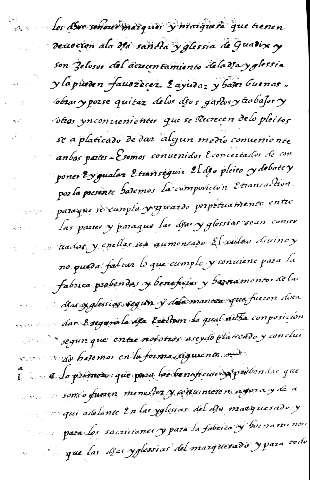 los dhos señores marques y marquesa que tienen
devocion a la dha sancta yglesia de Guadix y
son zelosos del acrecentamiento de la dha yglesia
y la pueden favorecer E ayudar y hazer buenas
obras y por se quitar de los dhos gastos y trabajos y
otros ynconvenientes que se Recrecen de lo pleitos
se a platicado de dar algun medio conveniente
anbas partes Esomos convenidos E concertados de con
poner E ygualar E transeguir El dho pleito y debate y
por la presente hazemos la composicion E transaction
para que se cumpla y guarde perpetuamente entre
las partes y para que las dhas yglesias sean conser
vadas y en ellas sea aumentado El culto divino y
no pueda faltar lo que cumple y conviene para la
fabrica probendas y beneficios y hornamentos de las
dhas yglesias segun y de la manera que fueron dota
das E segun la dha la qual dicha composicion
segun que entre nosotros a seydo platicado y conclui
do hazemos en la forma siguiente
lo primero que para los beneficios y prebendas que
son o fueren menester y se aumenten agora y de a
qui adelante En las yglesias del dho marquesado y
para los sacristanes y para la fabrica y hornamentos
que las dhas yglesias del marquesado y para todo